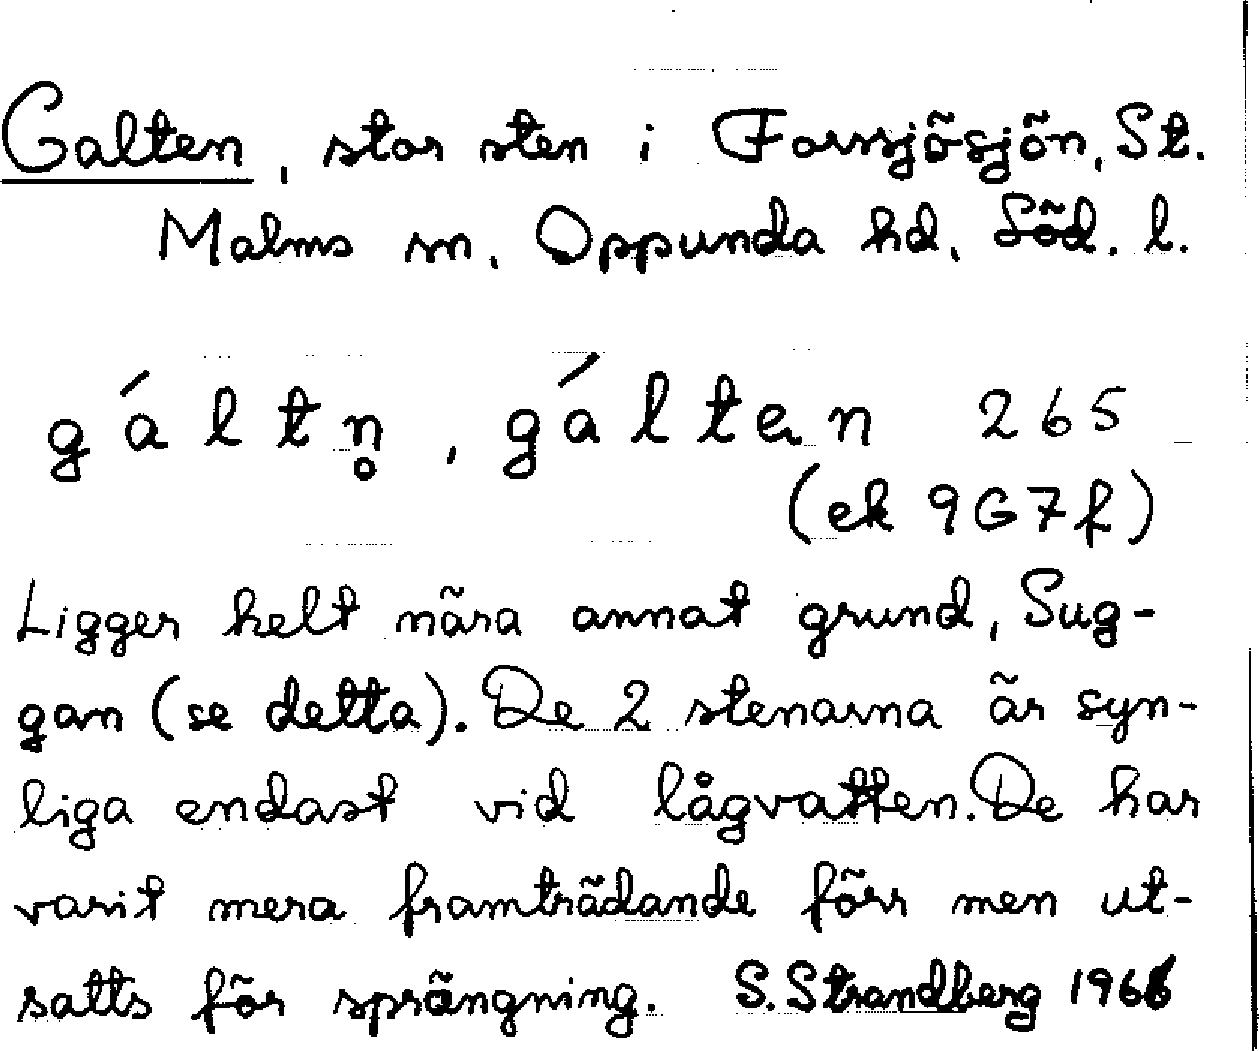 Galten, stor sten i Forssjösjön, St.
Malms sn, Oppunda hd, Söd. l.
gáltn̥, gálten 265
(ek 9G7f)
Ligger helt nära annat grund, Sug-
gan (se detta). De 2 stenarna är syn-
liga endast vid lågvatten. De har
varit mera framträdande förr men ut-
satts för sprängning. S. Strandberg 1966